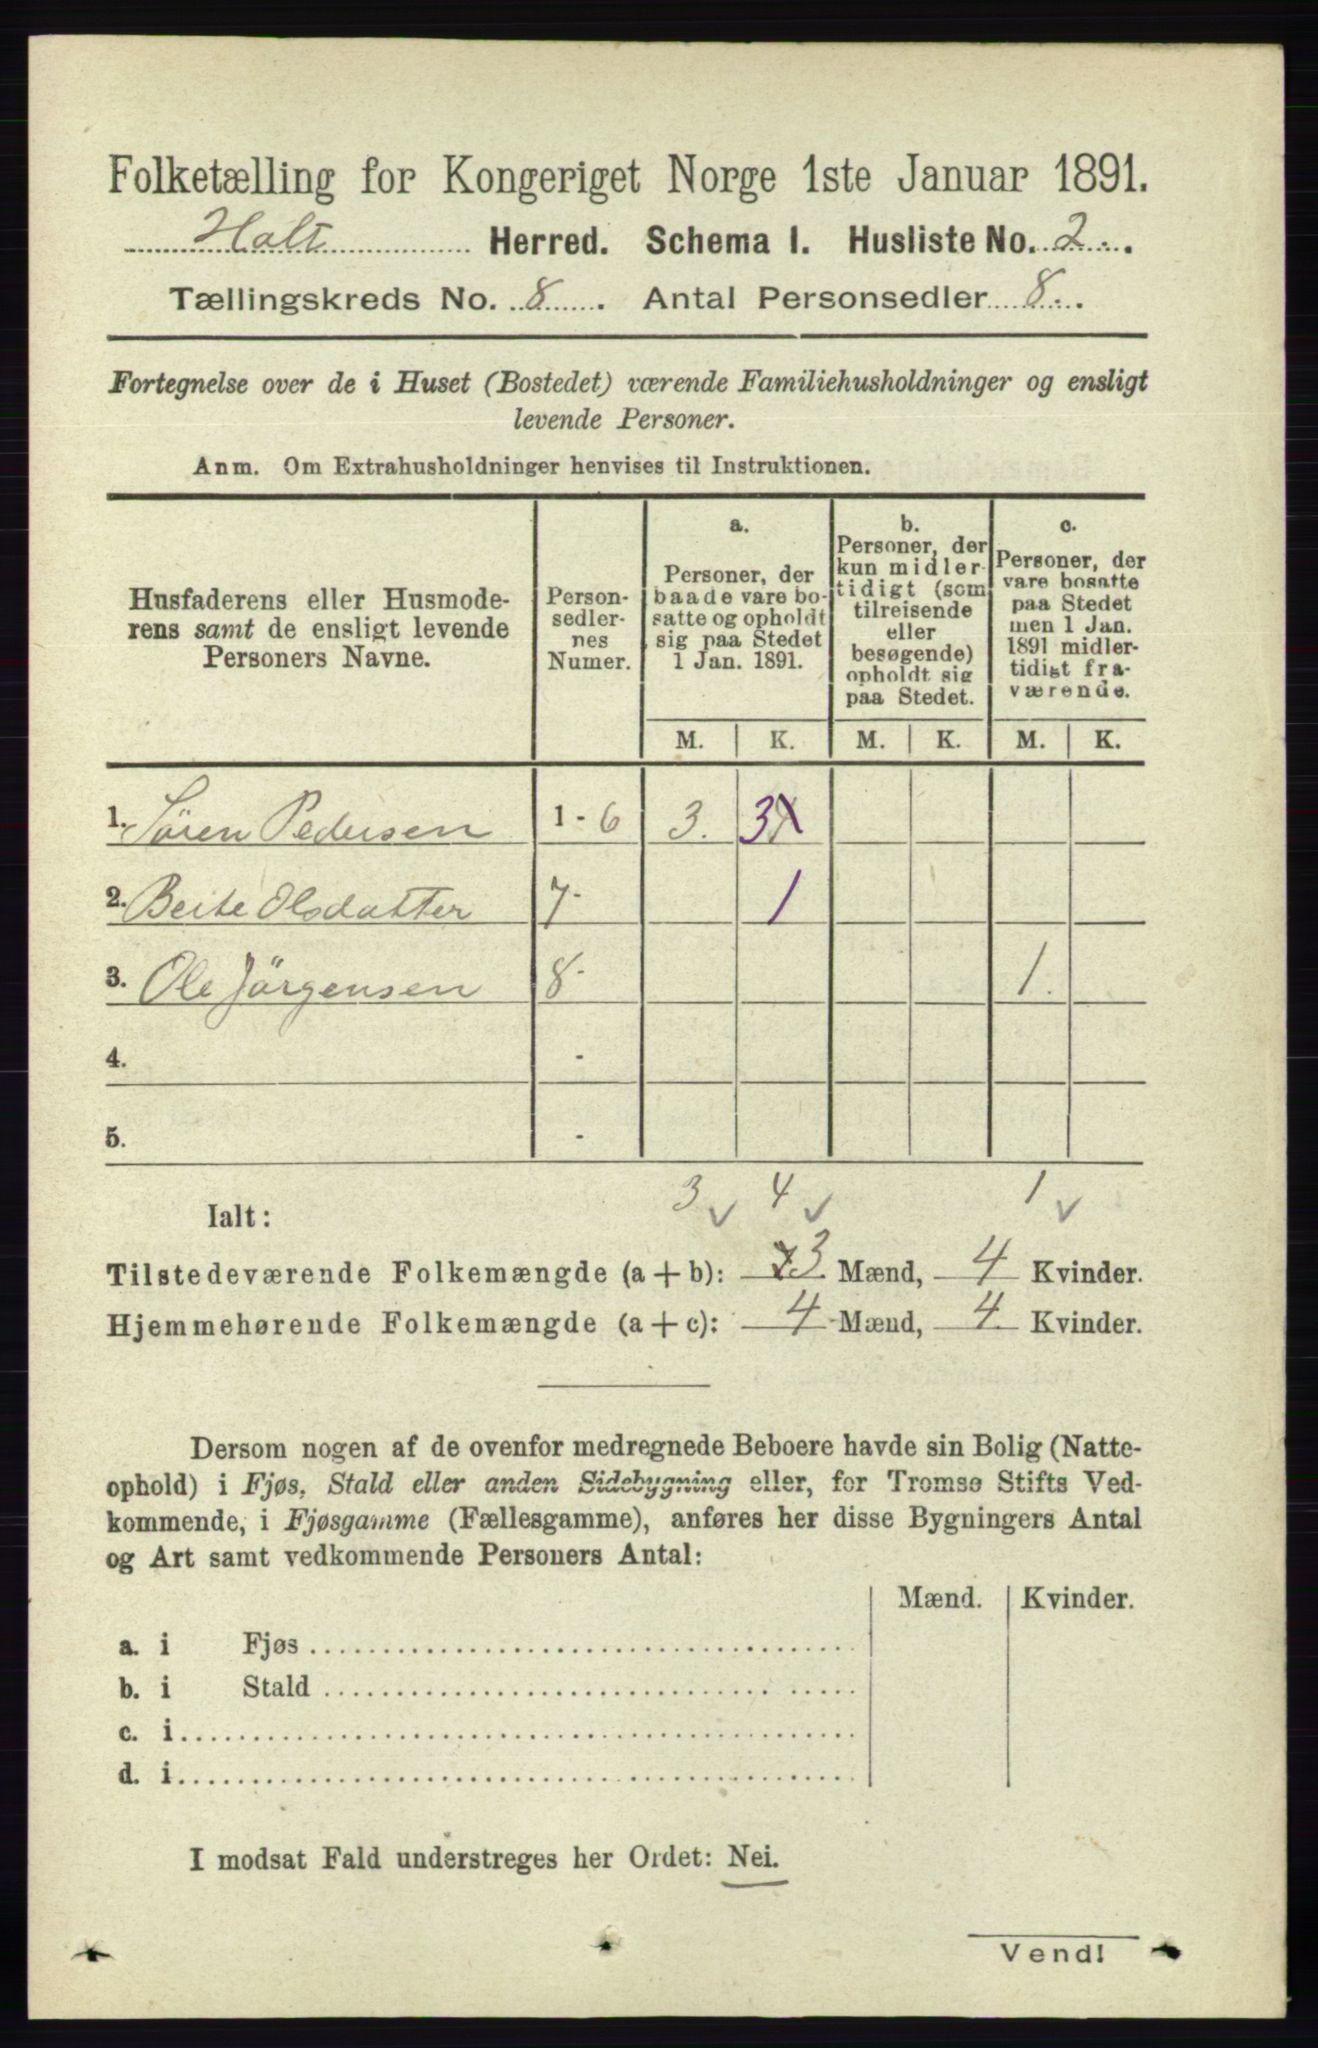 Folketælling for Kongeriget Norge 1ste Januar 1891.
Holt Herred. Schema I. Husliste No. 2.
Tællingskreds No. 8. Antal Personsedler 8.
Fortegnelse over de i Huset (Bostedet) værende Familiehusholdninger og ensligt
levende Personer.
Anm. Om Extrahusholdninger henvises til Instruktionen.
Husfaderens eller Husmode-
rens samt de ensligt levende
Personers Navne.
Person-
sedler-
nes
Numer.
a.
Personer, der
baade vare bo-
satte og opholdt
sig paa Stedet
1 Jan. 1891.
b.
Personer, der
kun midler-
tidigt (som
tilreisende
eller
besøgende)
opholdt sig
paa Stedet.
c.
Personer, der
vare bosatte
paa Stedet
men 1 Jan.
1891 midler-
tidigt fra-
værende.
M. K. M. K. M. K.
1. Søren Pedersen 1 - 6 3. 3
2. Berte Olsdatter 7 - 1
3. Ole Jörgensen 8 - 1.
4. -
5. -
Ialt: 3 4 1
Tilstedeværende Folkemængde (a + b): 3 Mænd, 4 Kvinder.
Hjemmehørende Folkemængde (a + c): 4 Mænd, 4 Kvinder.
Dersom nogen af de ovenfor medregnede Beboere havde sin Bolig (Natte-
ophold) i Fjøs, Stald eller anden Sidebygning eller, for Tromsø Stifts Ved-
kommende, i Fjøsgamme (Fællesgamme), anføres her disse Bygningers Antal
og Art samt vedkommende Personers Antal:
Mænd. Kvinder.
a. i Fjøs
b. i Stald
c. i
d. i
I modsat Fald understreges her Ordet: Nei.
Vend!